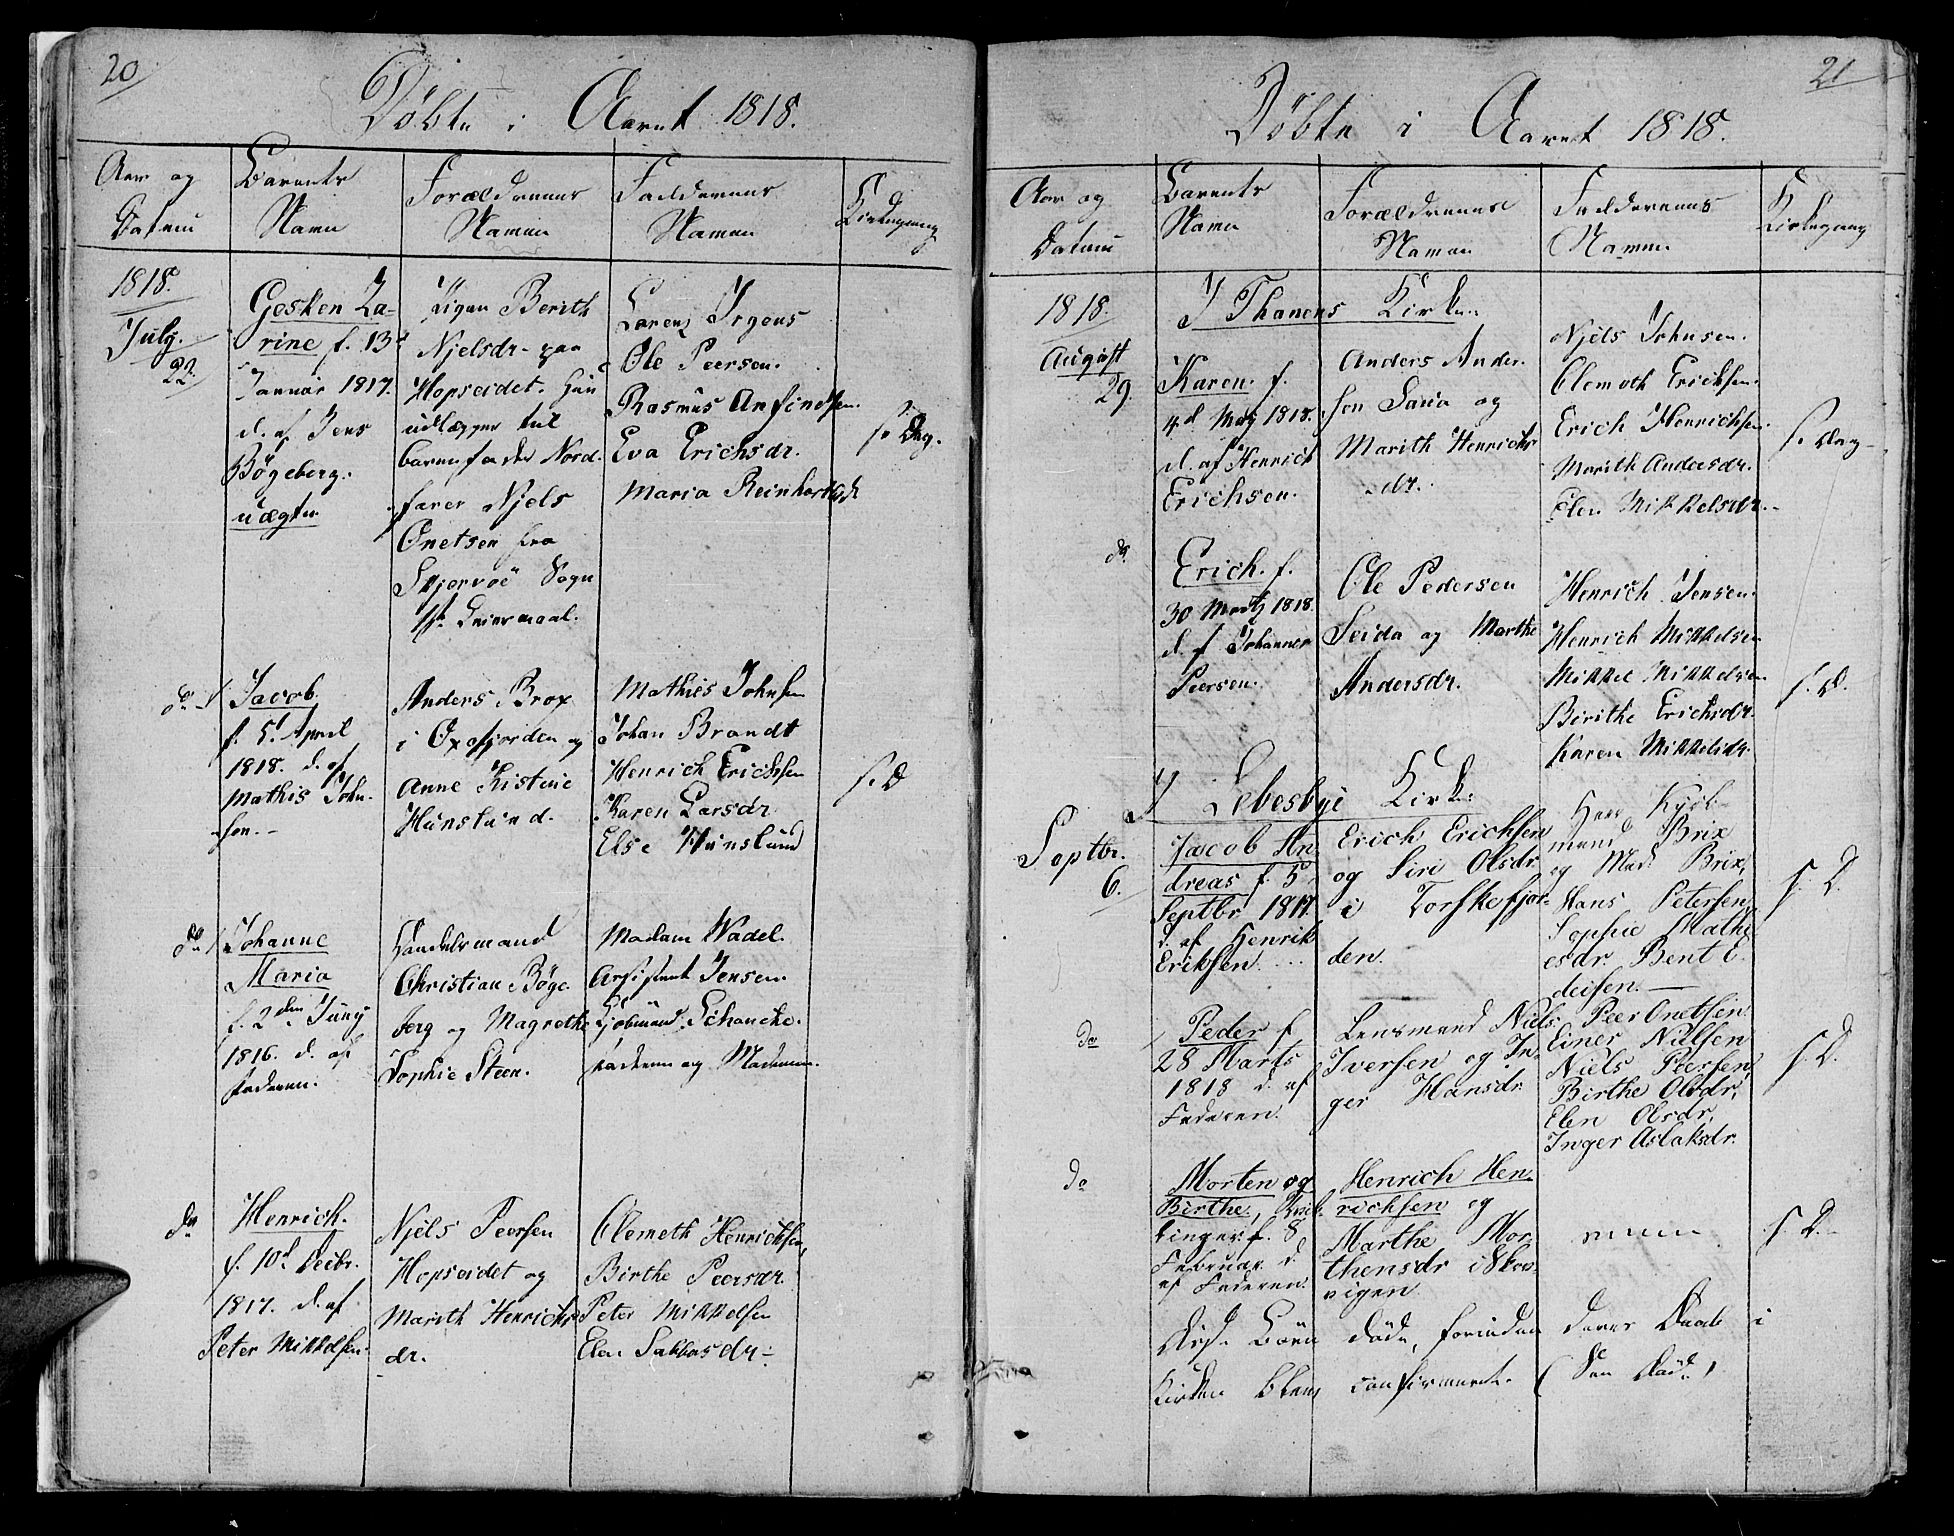 20
Döbte i Aaret 1818.
Aar og
Datum
Barnets
Navn
Forældrenes
Navnen
Faddernes
Navnen
Kirkegang
1818.
July.
22.
Gesken La-
rine f. 13d
Januar 1817.
d. af Jens
Bögeberg.
uægte.
Pigen Berith
Njelsdr. paa
Hopseidet. Hun
udlægger til
barnefader Nord-
farer Njels
Onetsen fra
Skjervöe Sogn
Leiermaal.
Larenz Irgens
Ole Peersen.
Rasmus Anfindsen.
Eva Erichsdr.
Maria Reinhartsdr
s. Dag.
do
Jacob
f. 5t April
1818. d. af
Mathis John-
sen.
Anders Brox
i Oxefjorden og
Anne Kistine
Hunslund.
Mathies Johnsen
Johan Brandt
Henrich Erichsen
Karen Larsdr
Else Hunslund
s. D
do
Johanne
Maria
f. 2den Juny
1816. d. af
Faderen.
Handelsmand
Christian Böge-
berg og Magrethe
Sophie Steen.
Madam Wadel.
Assistent Jensen.
Kjöbmand Schancke.
Faderen og Moderen.
do
Henrich.
f. 10d Decbr.
1817. d. af
Peter Mikkelsen.
Njels Peersen
Hopseidet og
Marith Henrichs
dr.
Clemeth Henrichsen,
Birthe Peersdr.
Peter Mikkelsen
Elen Sabbasdr.
21
Döbte i Aaret 1818.
Aar og
Datum
Barnets
Navn
Forældrenes
Navnen
Faddernes
Navnen.
Kirkegang
1818.
August
29
I Thanens Kirke:
Karen. f.
4d May 1818.
d. af Henrich
Erichsen.
Anders Ander-
sen Sana og
Marith Henrichs
dr.
Njels Johnsen.
Clemeth Erichsen.
Erich Henrichsen
Marith Andersdr.
Elen Mikkelsdr.
s. Dag
do
Erich. f.
30 Martz 1818.
d. af Johannes
Peersen.
Ole Pedersen
Seida og Marthe
Andersdr.
Henrich Jensen.
Henrich Mikkelsen
Mikkel Mikkelsen
Birithe Erichsdr.
Karen Mikkelsdr.
s. D.
I Lebesbye Kirke:
Septbr.
6.
Jacob An-
dreas f. 5
Septbr 1817.
d. af Henrik
Eriksen.
Erich Erichsen
og Siri Olsdr.
i Torskefjor-
den.
Herr Kjöb-
mand Brix
og Mad. Brix,
Hans Petersen,
Sophie Mathi
esdr. Bent E-
deisen.
s. D.
do
Peder f
28 Marts
1818 d. af
Faderen.
Lensmand Niels
Iversen og In-
ger Hansdr
Peer Onetsen
Einer Nilsen
Niels Peersen,
Birthe Olsdr,
Elen Olsdr,
Inger Aslaksdr.
s. D.
do
Morten og
Birthe, Tvil-
linger f. 8
Februar d.
af Faderen.
Henrich Hen-
richsen og
Marthe Mor-
thensdr i Skov-
vigen
s. D.
Disse Börn döde, forinden deres Daab i
Kirken blev confirmeret. (See Döde)